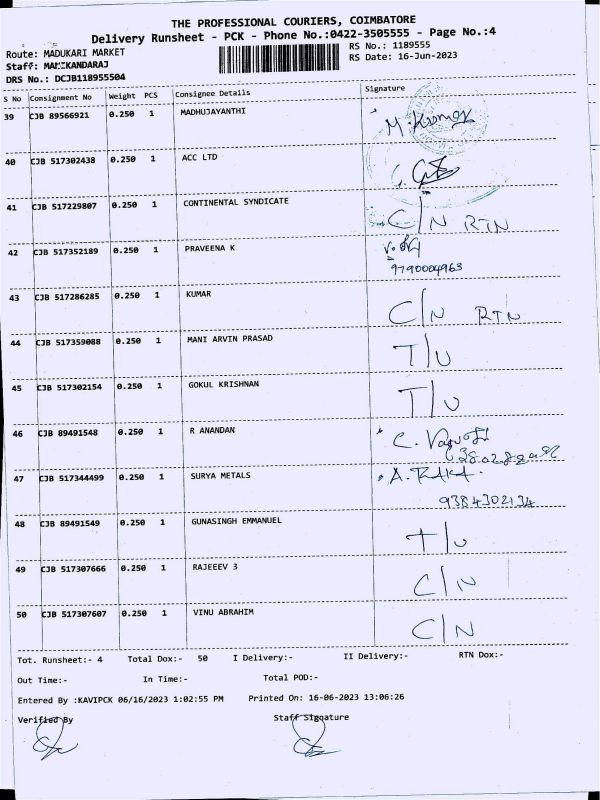 THE PROFESSIONAL COURIERS, COIMBATORE
Delivery Runsheet - PCK - Phone No.:0422-3505555 - Page No.:4
Route: MADUKARI MARKET
RS No.: 1189555
Staff: MANIKANDARAJ
RS Date: 16-Jun-2023
DRS No.: DCJB118955504
S No Consignment No Weight PCS Consignee Details Signature
39 CJB 89566921 0.250 1 MADHUJAYANTHI M. Kumar
40 CJB 517302438 0.250 1 ACC LTD
41 CJB 517229807 0.250 1 CONTINENTAL SYNDICATE C/N RTN
42 CJB 517352189 0.250 1 PRAVEENA K
9790004963
43 CJB 517286285 0.250 1 KUMAR C/N RTN
44 CJB 517359088 0.250 1 MANI ARVIN PRASAD T/U
45 CJB 517302154 0.250 1 GOKUL KRISHNAN T/U
46 CJB 89491548 0.250 1 R ANANDAN
47 CJB 517344499 0.250 1 SURYA METALS
9384302134
48 CJB 89491549 0.250 1 GUNASINGH EMMANUEL T/U
49 CJB 517307666 0.250 1 RAJEEEV 3 C/N
50 CJB 517307607 0.250 1 VINU ABRAHIM C/N
Tot. Runsheet:- 4 Total Dox:- 50 I Delivery:- II Delivery:- RTN Dox:-
Out Time:- In Time:- Total POD:-
Entered By :KAVIPCK 06/16/2023 1:02:55 PM Printed On: 16-06-2023 13:06:26
Verified By Staff Signature